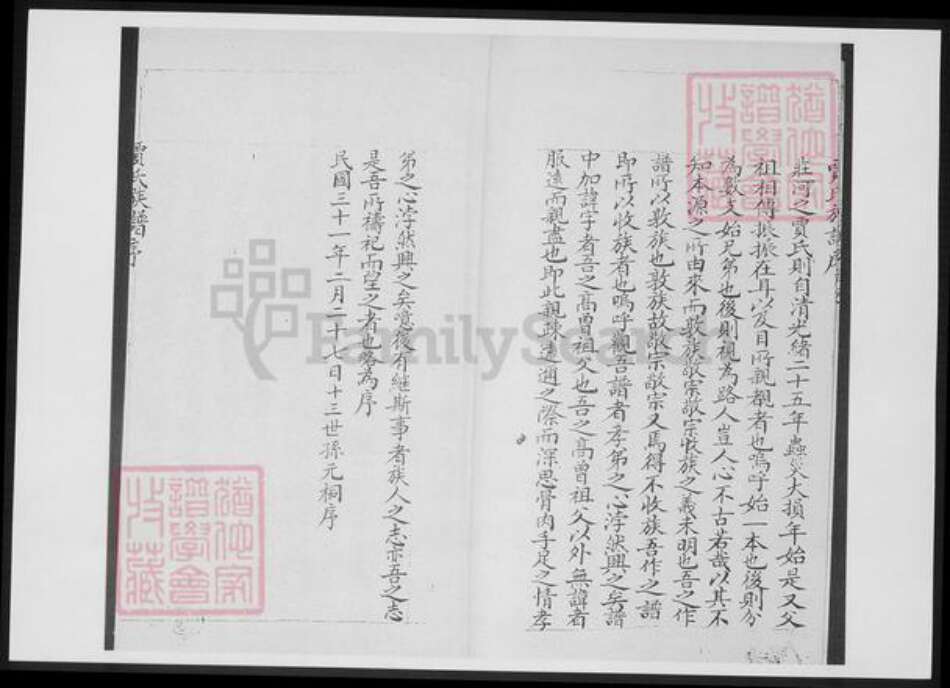 賈氏族譜序
莊河之賈氏則自清光緒二十五年蟲災大損年始是又父
祖相傳振振在耳以及目所親覩者也嗚呼始一本也後則分
為數支始兄弟也後則視為路人豈人心不古若哉以其不
知本源之所由來而敦族敬宗敬宗收族之義未明也吾之作
譜所以敦族也敦族故敬宗敬宗又焉得不收族吾作之譜
即所以收族者也嗚呼觀吾譜者孝弟之心浡然興之矣譜
中加諱字者吾之高曾祖父也吾之高曾祖父以外無諱者
服遠而親盡也即此親疎遠邇之際而深思骨肉手足之情孝
弟之心浡然興之矣噫後有繼斯事者族人之志亦吾之志
是吾所禱祀而望之者也略為序
民國三十一年二月二十七日十三世孫元桐序
賈氏族譜序
譜學會
收藏
FamilySearch